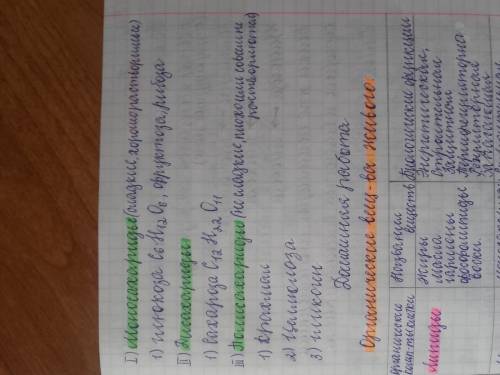 I) Моносахариды (сладкие, хорошо растворимые)
1) глюкоза C6 H12 O6, фруктоза, рибоза
II) Дисахариды
1) Сахароза C12 H22 O11
III) Полисахариды (не сладкие, плохо или совсем не растворяются)
1) Крахмал
2) Целлюлоза
3) гликоген
Домашняя работа
Органические вещ-ва живого
органические
Названия веществ
Биологические функции
липиды
Жиры
Масла
гормоны
фосфолипиды
воски.
Энергетическая.
Строительная
Защитная